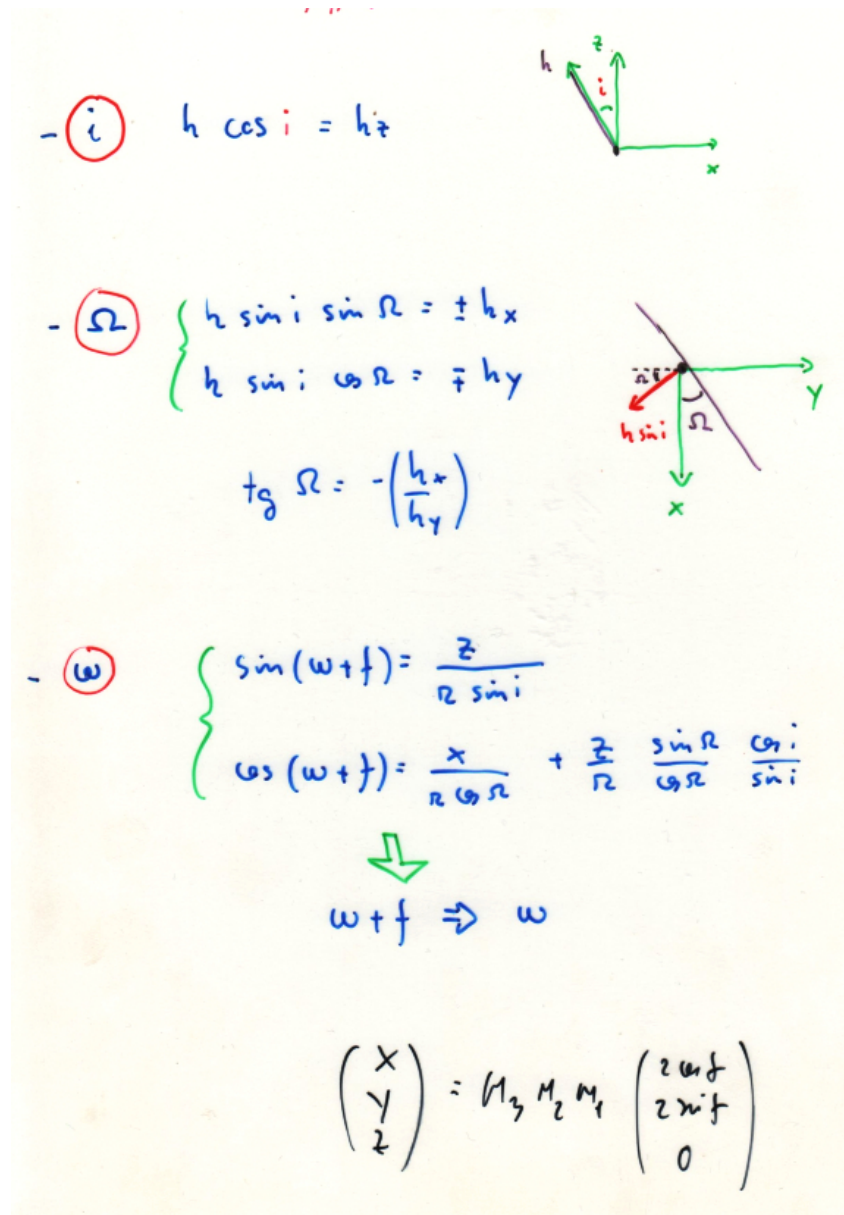 - i h cos i = hz
h z i x
- Ω h sin i sin Ω = ± hx
h sin i cos Ω = ∓ hy
Ω Y
h sin i Ω
X
tg Ω = -(hx/hy)
- ω sin(ω+f) = z / r sin i
cos(ω+f) = x / r cos Ω + z/r sin Ω/cos Ω cos i/sin i
⇩
ω+f ⇒ ω
(X Y Z) = M3 M2 M1 (r cos f r sin f 0)